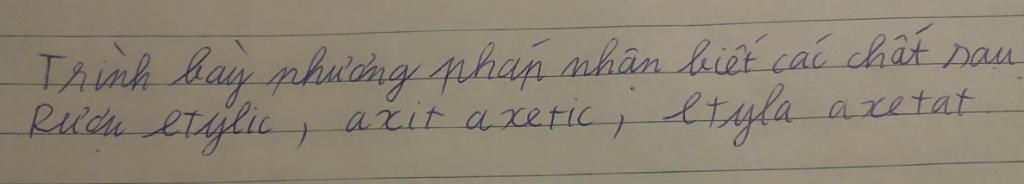 Trình bày phương pháp nhận biết các chất sau
Rượu etylic, axit axetic, etyla axetat